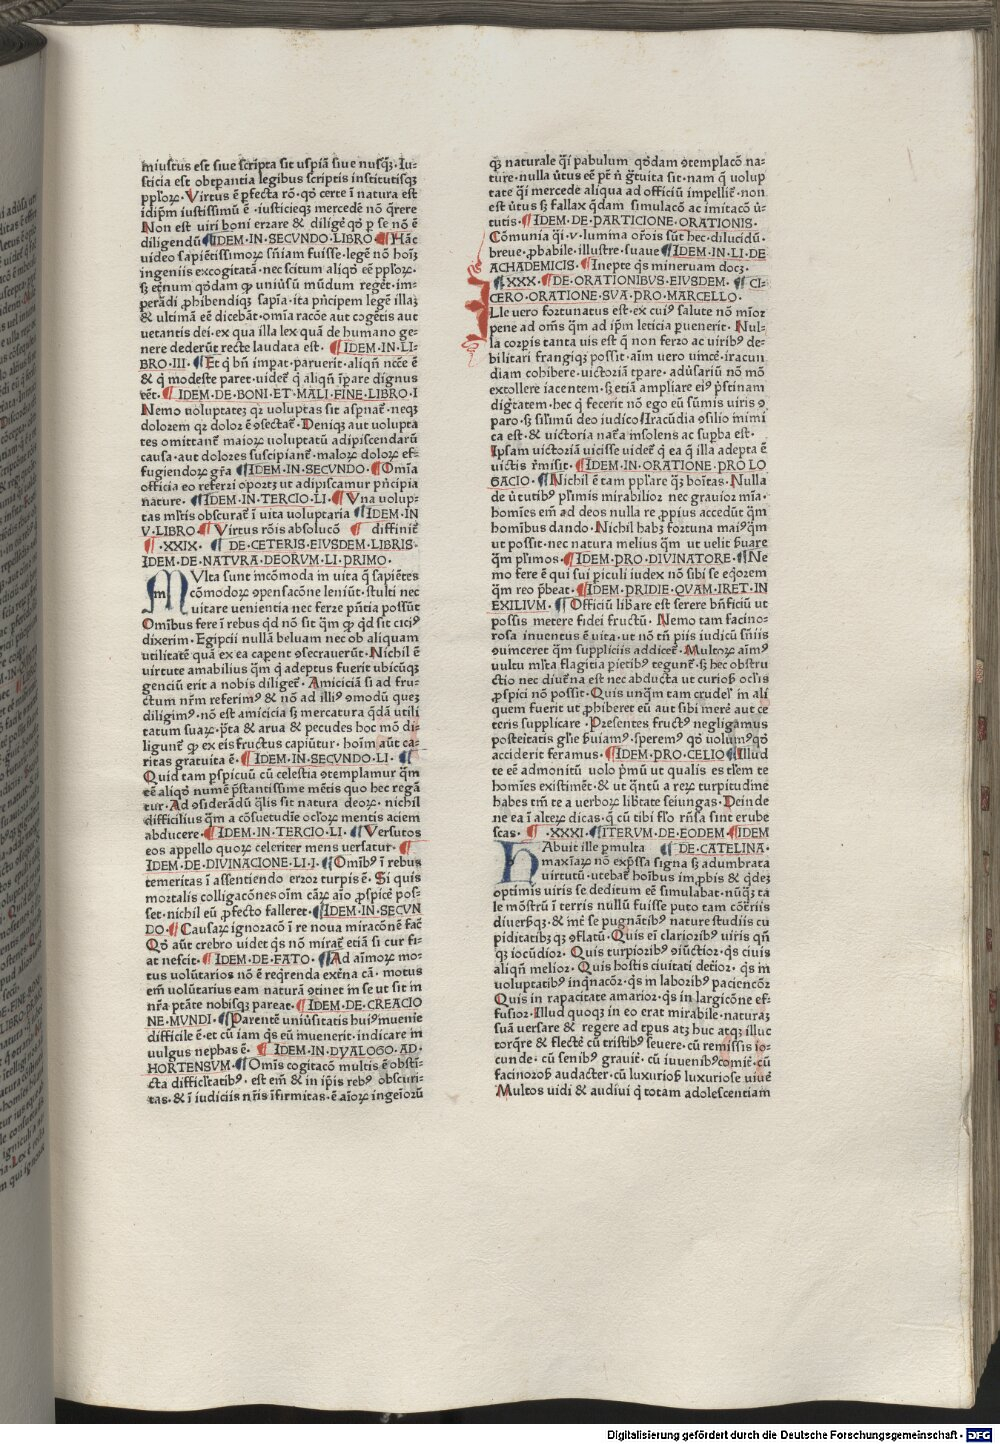 iniustus est siue scripta sit uspiã siue nusqȝ· Iu-
sticia est obtpantia legibus scriptis institutisqȝ
pploꝝ· Virtus ē pfecta rõ· qđ certe ī natura est
idipm iustissimũ ē· iusticieqȝ mercedē nõ qrere
Non est uiri boni errare & diligē qđ p se nõ ē
diligendũ ¶IDEM·IN·SECVNDO·LIBRO ¶Hāc
uideo sapiētissimoꝝ sñiam fuisse· legē nõ hoīȝ
ingeniis excogitatā· nec scitum aliqđ eē pploꝝ·
sȝ eṫnum qđdam qd uniũsũ mũdum reget· im-
perādi phibendiqȝ sapīa· ita pncipem legē illaȝ
& ultimā eē dicebāt· omīa racõe aut cogētis aut
uetantis dei· ex qua illa lex quā de humano ge-
nere dederūt recte laudata est· ¶IDEM·IN·LI-
BRO·III· ¶Et q bñ impat· paruerit· aliqñ ncē ē
& q modeste paret· uideṫ q aliqñ īpare dignus
eēt· ¶IDEM·DE·BONI·ET·MALI·FINE·LIBRO·I
Nemo uoluptateȝ qꝛ uoluptas sit aspnaṫ· neqȝ
dolorem qꝛ dolor ē ꝯsectaṫ· Deniqȝ aut uolupta
tes omittanṫ maioꝝ uoluptatũ adipiscendarũ
causa· aut dolores suscipianṫ· maloꝝ doloꝝ ef-
fugiendoꝝ gra ¶IDEM·IN·SECVNDO· ¶Omīa
officia eo referri oportȝ ut adipiscamur pncipia
nature· ¶IDEM·IN·TERCIO·LI· ¶Vna uolup-
tas mltis obscuraṫ ī uita uoluptaria ¶IDEM·IN
V·LIBRO ¶Virtus rõis absolucõ ¶ diffiniṫ
¶·XXIX· ¶DE·CETERIS·EIVSDEM·LIBRIS·
IDEM·DE·NATVRA·DEORVM·LI·PRIMO·
MVlta sunt incõmoda in uita q sapiētes
cõmodoꝝ ꝯpensacõne leniũt· stulti nec
uitare uenientia nec ferre pñtia possũt
Omībus fere ī rebus qd nõ sit qm qd sit ciciꝰ
dixerim· Egipcii nullā beluam nec ob aliquam
utilitatē quā ex ea capent ꝯsecrauerũt· Nichil ē
uirtute amabilius qm q adeptus fuerit ubicūqȝ
genciũ erit a nobis diligeṫ· Amiciciā si ad fru-
ctum nrm referimꝰ & nõ ad illiꝰ ꝯmodũ queȝ
diligimꝰ· nõ est amicicia sȝ mercatura qdā utili
tatum suaꝝ· pta & arua & pecudes hoc mõ di-
ligunṫ qd ex eis fructus capiũtur· hoīm aũt ca-
ritas gratuita ē· ¶IDEM·IN·SECVNDO·LI· ¶
Quid tam pspicuũ cũ celestia ꝯtemplamur qm
eē aliqđ numē pstantissime mētis quo hec regā
tur· Ad ꝯsiderādũ qlis sit natura deoꝝ· nichil
difficilius qm a cõsuetudīe ocłoꝝ mentis aciem
abducere· ¶IDEM·IN·TERCIO·LI· ¶Versutos
eos appello quoꝝ celeriter mens uersatur· ¶
IDEM·DE·DIVINACIONE·LI·I· ¶Omībꝰ ī rebus
temeritas ī assentiendo error turpis ē· Si quis
mortalis colligacõnes oīm cāꝝ aīo pspicē pos-
set· nichil eũ pfecto falleret· ¶IDEM·IN·SECVN
DO· ¶Causaꝝ ignoracõ ī re noua miracõnē faċ
Qđ aũt crebro uidet qs nõ miraṫ etiā si cur fi-
at nescit· ¶IDEM·DE·FATO· ¶Ad aīmoꝝ mo-
tus uolũtarios nõ ē reqrenda exṫna cā· motus
em uolũtarius eam naturā ꝯtinet in se ut sit in
nra ptāte nobisqȝ pareat· ¶IDEM·DE·CREACIO
NE·MVNDI· ¶Parentē uniũsitatis huiꝰ inuenie
difficile ē· et cũ iam qs eũ inuenerit· indicare in
uulgus nephas ē· ¶IDEM·IN·DYALOGO·AD·
HORTENSVM· ¶Omīs cogitacõ multis ē obsti-
cta difficłtatibꝰ· est em & in ipīs rebꝰ obscuri-
tas· & ī iudiciis nris īfirmitas· ē aīoꝝ ingeīorũ
qȝ naturale qī pabulum qđdam ꝯtemplacõ na-
ture· nulla ũtus eē pt ñ gtuita sit· nam q uolup
tate qī mercede aliqua ad officiũ impelliṫ· non
est ũtus sȝ fallax qdam simulacõ ac imitacõ ũ-
tutis· ¶IDEM·DE·PARTICIONE·ORATIONIS·
Cõmunia qī·v·lumina orõis sũt hec· dilucidũ·
breue· pbabile· illustre· suaue ¶IDEM·IN·LI·DE
ACHADEMICIS· ¶Inepte qs mineruam docȝ·
¶XXX· ¶DE·ORATIONIBVS·EIVSDEM· ¶CI-
CERO·ORATIONE·SVA·PRO·MARCELLO·
ILle uero fortunatus est· ex cuiꝰ salute nõ mīor
pene ad oms qm ad ipm leticia puenerit· Nul-
la corpis tanta uis est q non ferro ac uiribꝰ de-
bilitari frangiqȝ possit· aīm uero uincē· iracun
diam cohibere· uictoriā tpare· adũsariũ nõ mõ
extollere iacentem· sȝ etiā ampliare eiꝰ pstinam
digtatem· hec q fecerit nõ ego eũ sũmis uiris ꝯ
paro· sȝ silimũ deo iudico ¶Iracũdia ꝯsilio inimi
ca est· & uictoria naṫa insolens ac supba est·
Ipsam uictoriā uicisse uideṫ q ea q illa adepta ē
uictis rmisit· ¶IDEM·IN·ORATIONE·PRO LO
GACIO· ¶Nichil ē tam pplare qȝ boītas· Nulla
de ũtutibꝰ plimis mirabilior nec grauior mīa·
homīes em ad deos nulla re ppius accedũt qm
homībus dando· Nichil habȝ fortuna maiꝰ qm
ut possit· nec natura melius qm ut uelit buare
qm plimos· ¶IDEM·PRO·DIVINATORE· ¶Ne
mo fere ē qui sui piculi iudex nõ sibi se eqorem
qm reo pbeat· ¶IDEM·PRIDIE·QVAM·IRET·IN
EXILIVM· ¶Officiũ libare est serere bnficiũ ut
possis metere fidei fructũ· Nemo tam facino-
rosa inuentus ē uita· ut nõ tn piis iudicũ sñiis
ꝯuinceret qm suppliciis addiceṫ· Multoꝝ aīmꝰ
uultu mlta flagitia pietibꝰ tegunṫ· sȝ hec obstru
ctio nec diuṫna est nec abducta ut curiosꝭ oclis
pspici nõ possit· Quis unqm tam crudelꝭ in ali
quem fuerit ut phiberet eũ aut sibi mere aut ce
teris supplicare· Presentes fructꝰ negligamus
posteitatis glie buiamꝰ· speremꝰ qđ uolumꝰ qđ
acciderit feramus· ¶IDEM·PRO·CELIO ¶Illud
te eē admonitũ uolo pmũ ut qualis es tlem te
homīes existimēt· & ut qntũ a reꝝ turpitudine
habes tm te a uerboꝝ libtate seiungas· Deinde
ne ea ī alteꝝ dicas· q cũ tibi flo rñsa sint erube
scas· ¶·XXXI· ¶ITERVM·DE·EODEM ¶IDEM
HAbuit ille pmulta ¶DE·CATELINA·
maxīaꝝ nõ expssa signa sȝ adumbrata
uirtutũ· utebaṫ hoībus improbis & qdeȝ
optimis uiris se deditum eē simulabat· nũqȝ ta
le mõstrũ ī terris nullũ fuisse puto tam cõtriis
diuerbqȝ· & inṫ se pugnātibꝰ nature studiis cu
piditatibȝqȝ ꝯflatũ· Quis eī clarioribꝰ uiris qñ
qȝ iocũdior· Quis turpioribꝰ ꝯiũctior· qs ciuis
aliqñ melior· Quis hostis ciuitati deṫior· qs in
uoluptatibꝰ inqnacõr· qs in laboribꝰ paciencõr
Quis in rapacitate amarior· qs in largicõne ef-
fusior· Illud quoqȝ in eo erat mirabile· naturaȝ
suā uersare & regere ad tpus atȝ huc atqȝ illuc
torqre & flectē cũ tristibꝰ seuere· cũ remissis io-
cunde· cũ senibꝰ grauiṫ· cũ iuuenibꝰ comiṫ· cũ
facinorosꝭ audacter· cũ luxuriosꝭ luxuriose uiuē
Multos uidi & audiui q totam adolescentiam
Digitalisierung gefördert durch die Deutsche Forschungsgemeinschaft - DFG